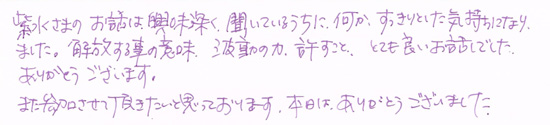 紫水さまの お話は 興味深く、聞いているうちに、何か、すっきりとした気持ちになり、
ました。解放する事の意味、波動の力、許すこと、とても良いお話でした。
ありがとうございます。
また参加させて頂きたいと思っております。本日は、ありがとうございました。